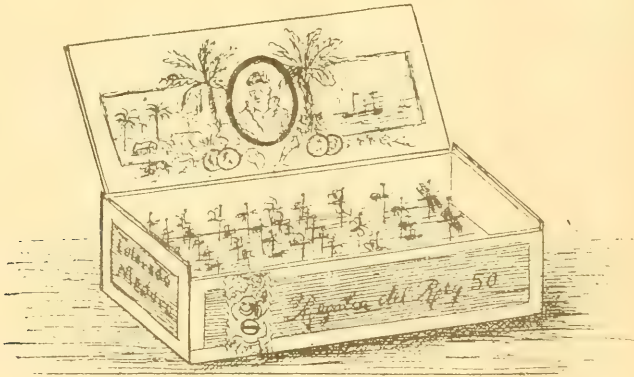 Colorado
Maduro
Regalia del Rey 50